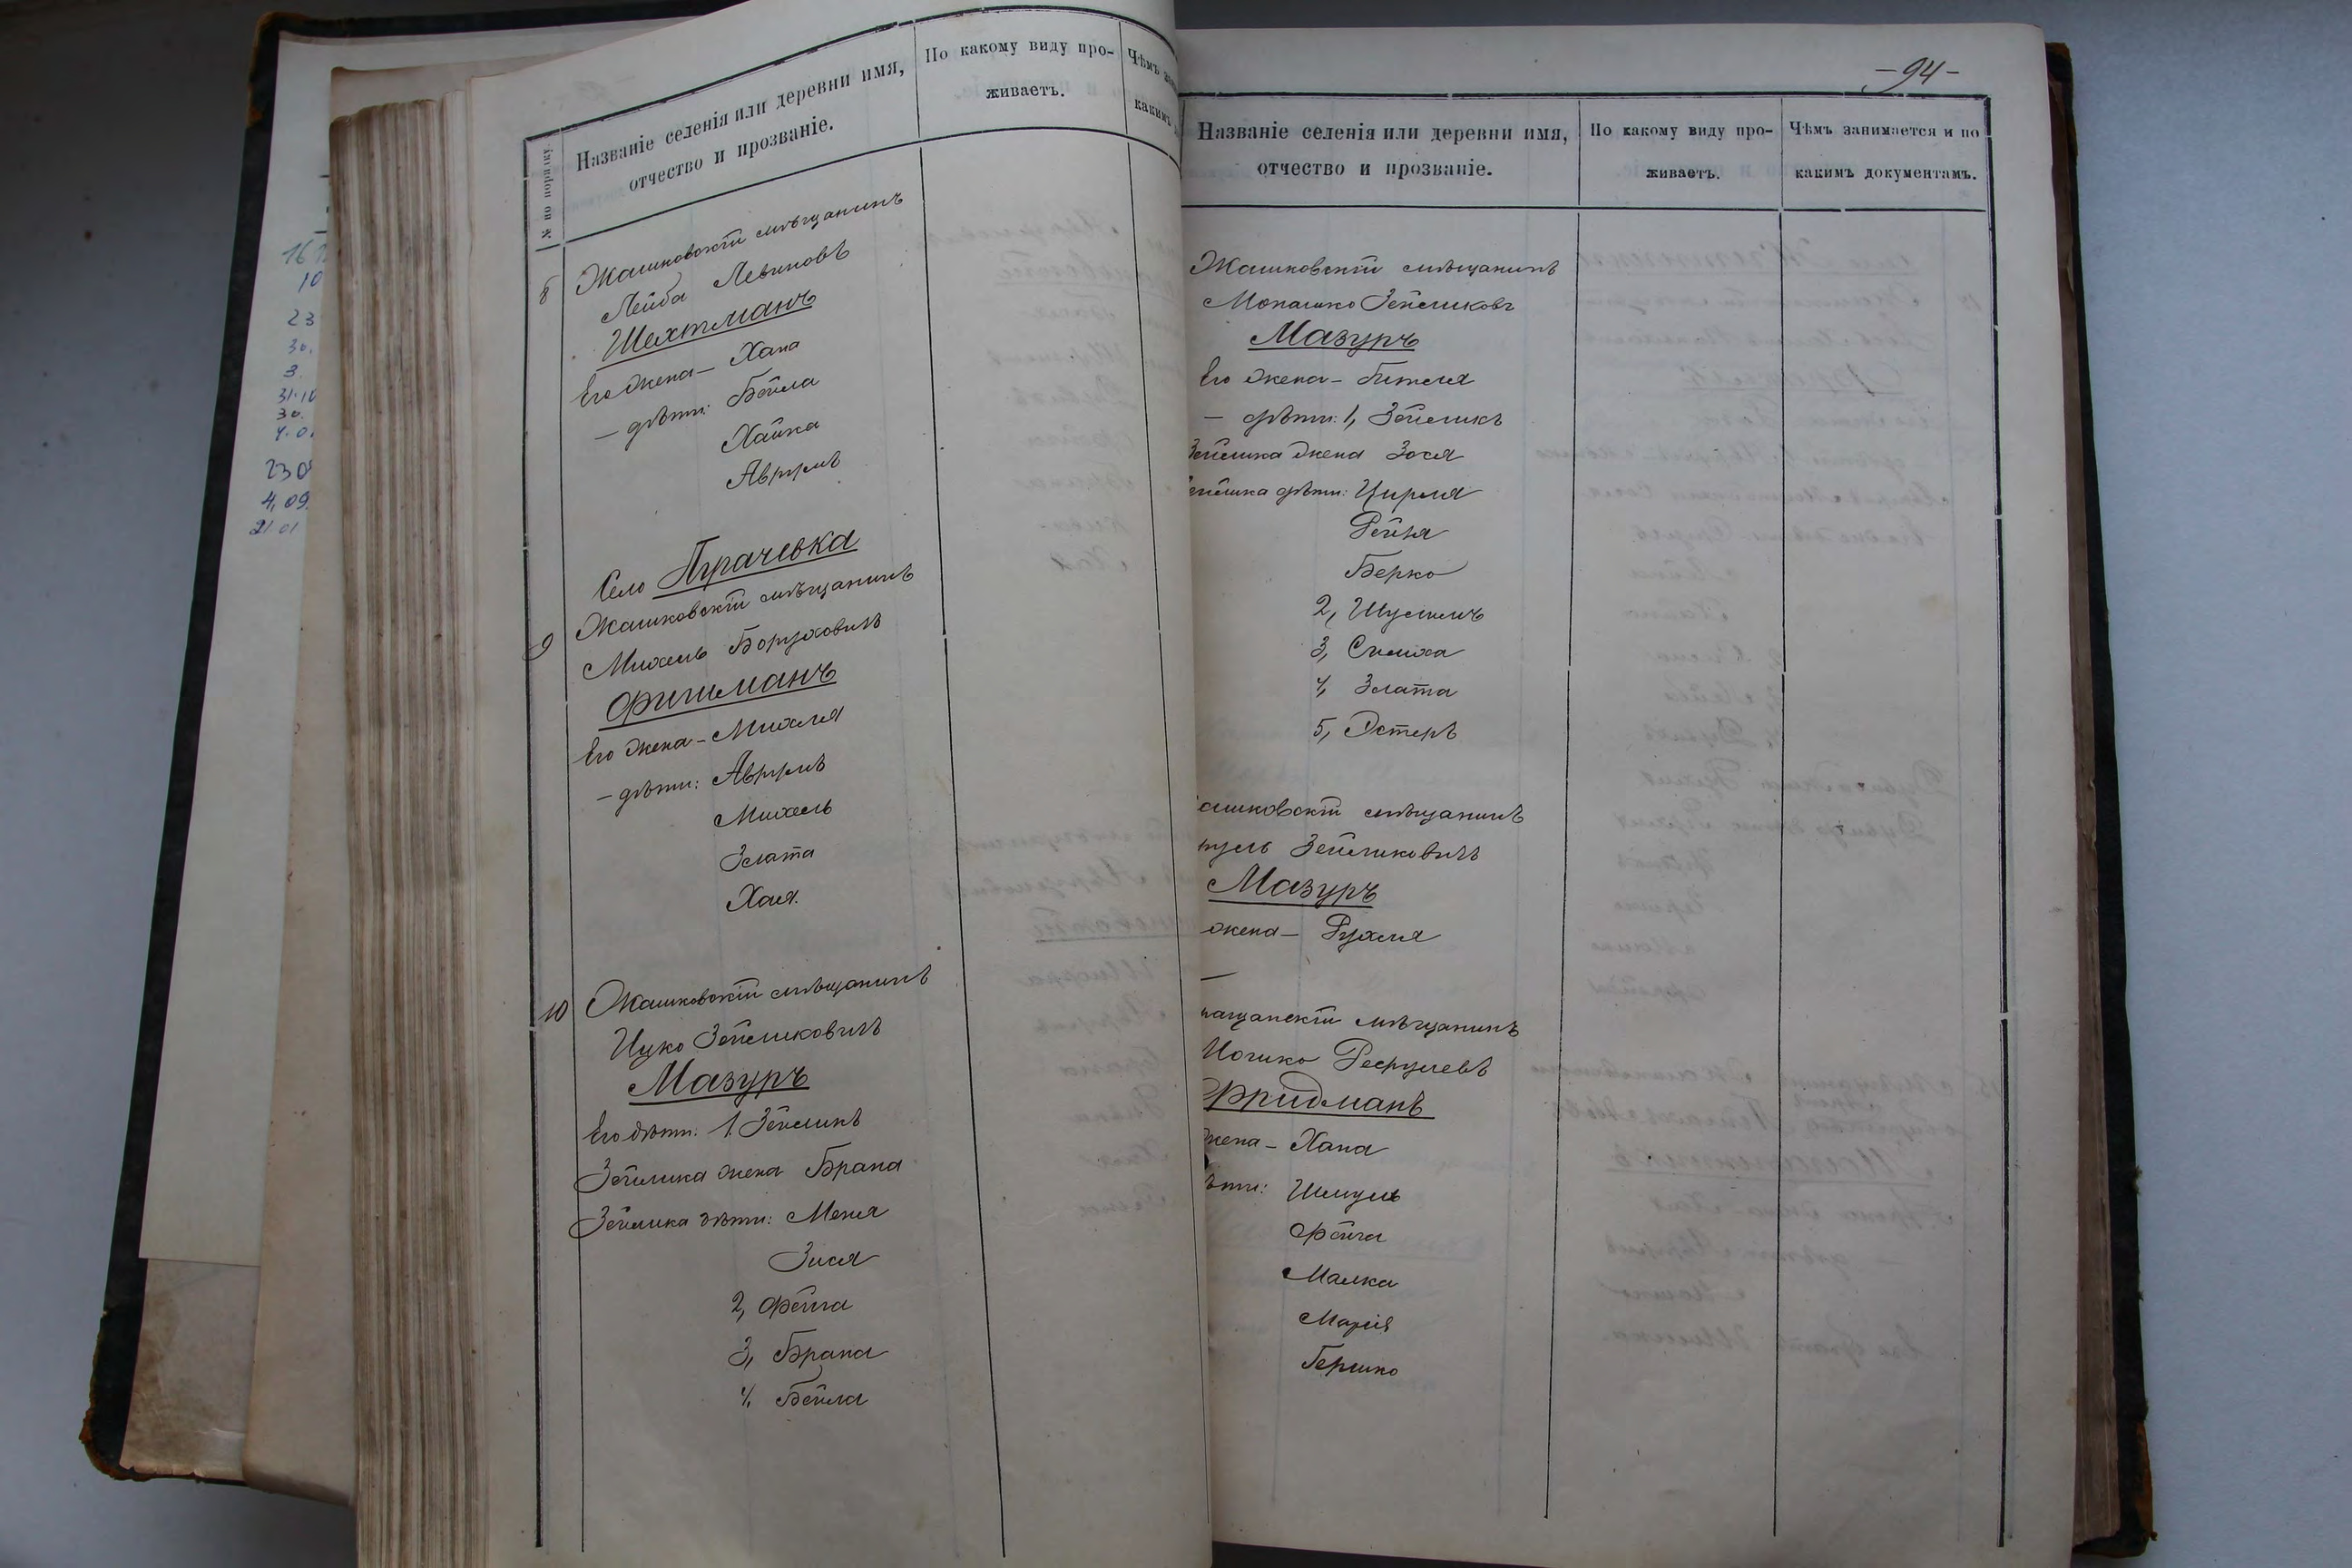 № по порядку.
Названіе селенія или деревни имя,
отчество и прозваніе.
По какому виду про-
живаетъ.
Чѣмъ
какимъ
8
Жашковскій мѣщанинъ
Лейба Левиковъ
Шехтманъ
Его жена – Хана
– дѣти: Бейла
Хайка
Аврумъ
Село Пугачевка
9
Жашковскій мѣщанинъ
Михель Боруховичъ
Фишманъ
Его жена – Михля
– дѣти: Аврумъ
Михель
Злата
Хая.
10
Жашковскій мѣщанинъ
Ицко Зейликовичъ
Мазуръ
Его дѣти: 1. Зейликъ
Зейлика жена Брана
Зейлика дѣти: Меня
Зися
2, Фейга
3, Брана
4, Бейла
– 94 –
Названіе селенія или деревни имя,
отчество и прозваніе.
По какому виду про-
живаетъ.
Чѣмъ занимается и по
какимъ документамъ.
Жашковскій мѣщанинъ
Монашко Зейликовъ
Мазуръ
Его жена – Гителя
– дѣти: 1, Зейликъ
Зейлика жена Зося
ейлика дѣти: Цирля
Рейзя
Берко
2, Шулимъ
3, Симха
4, Злата
5, Эстеръ
ашковскій мѣщанинъ
руль Зейликовичъ
Мазуръ
жена – Рухля
–
ращанскій мѣщанинъ
Иошко Расрулевъ
Фридманъ
жена – Хана
ѣти: Шмуль
Фейга
Малка
Марія
Гершко
16
10
23
30.
3.
31.10
30.
4.0.
230
4,09.
21 01